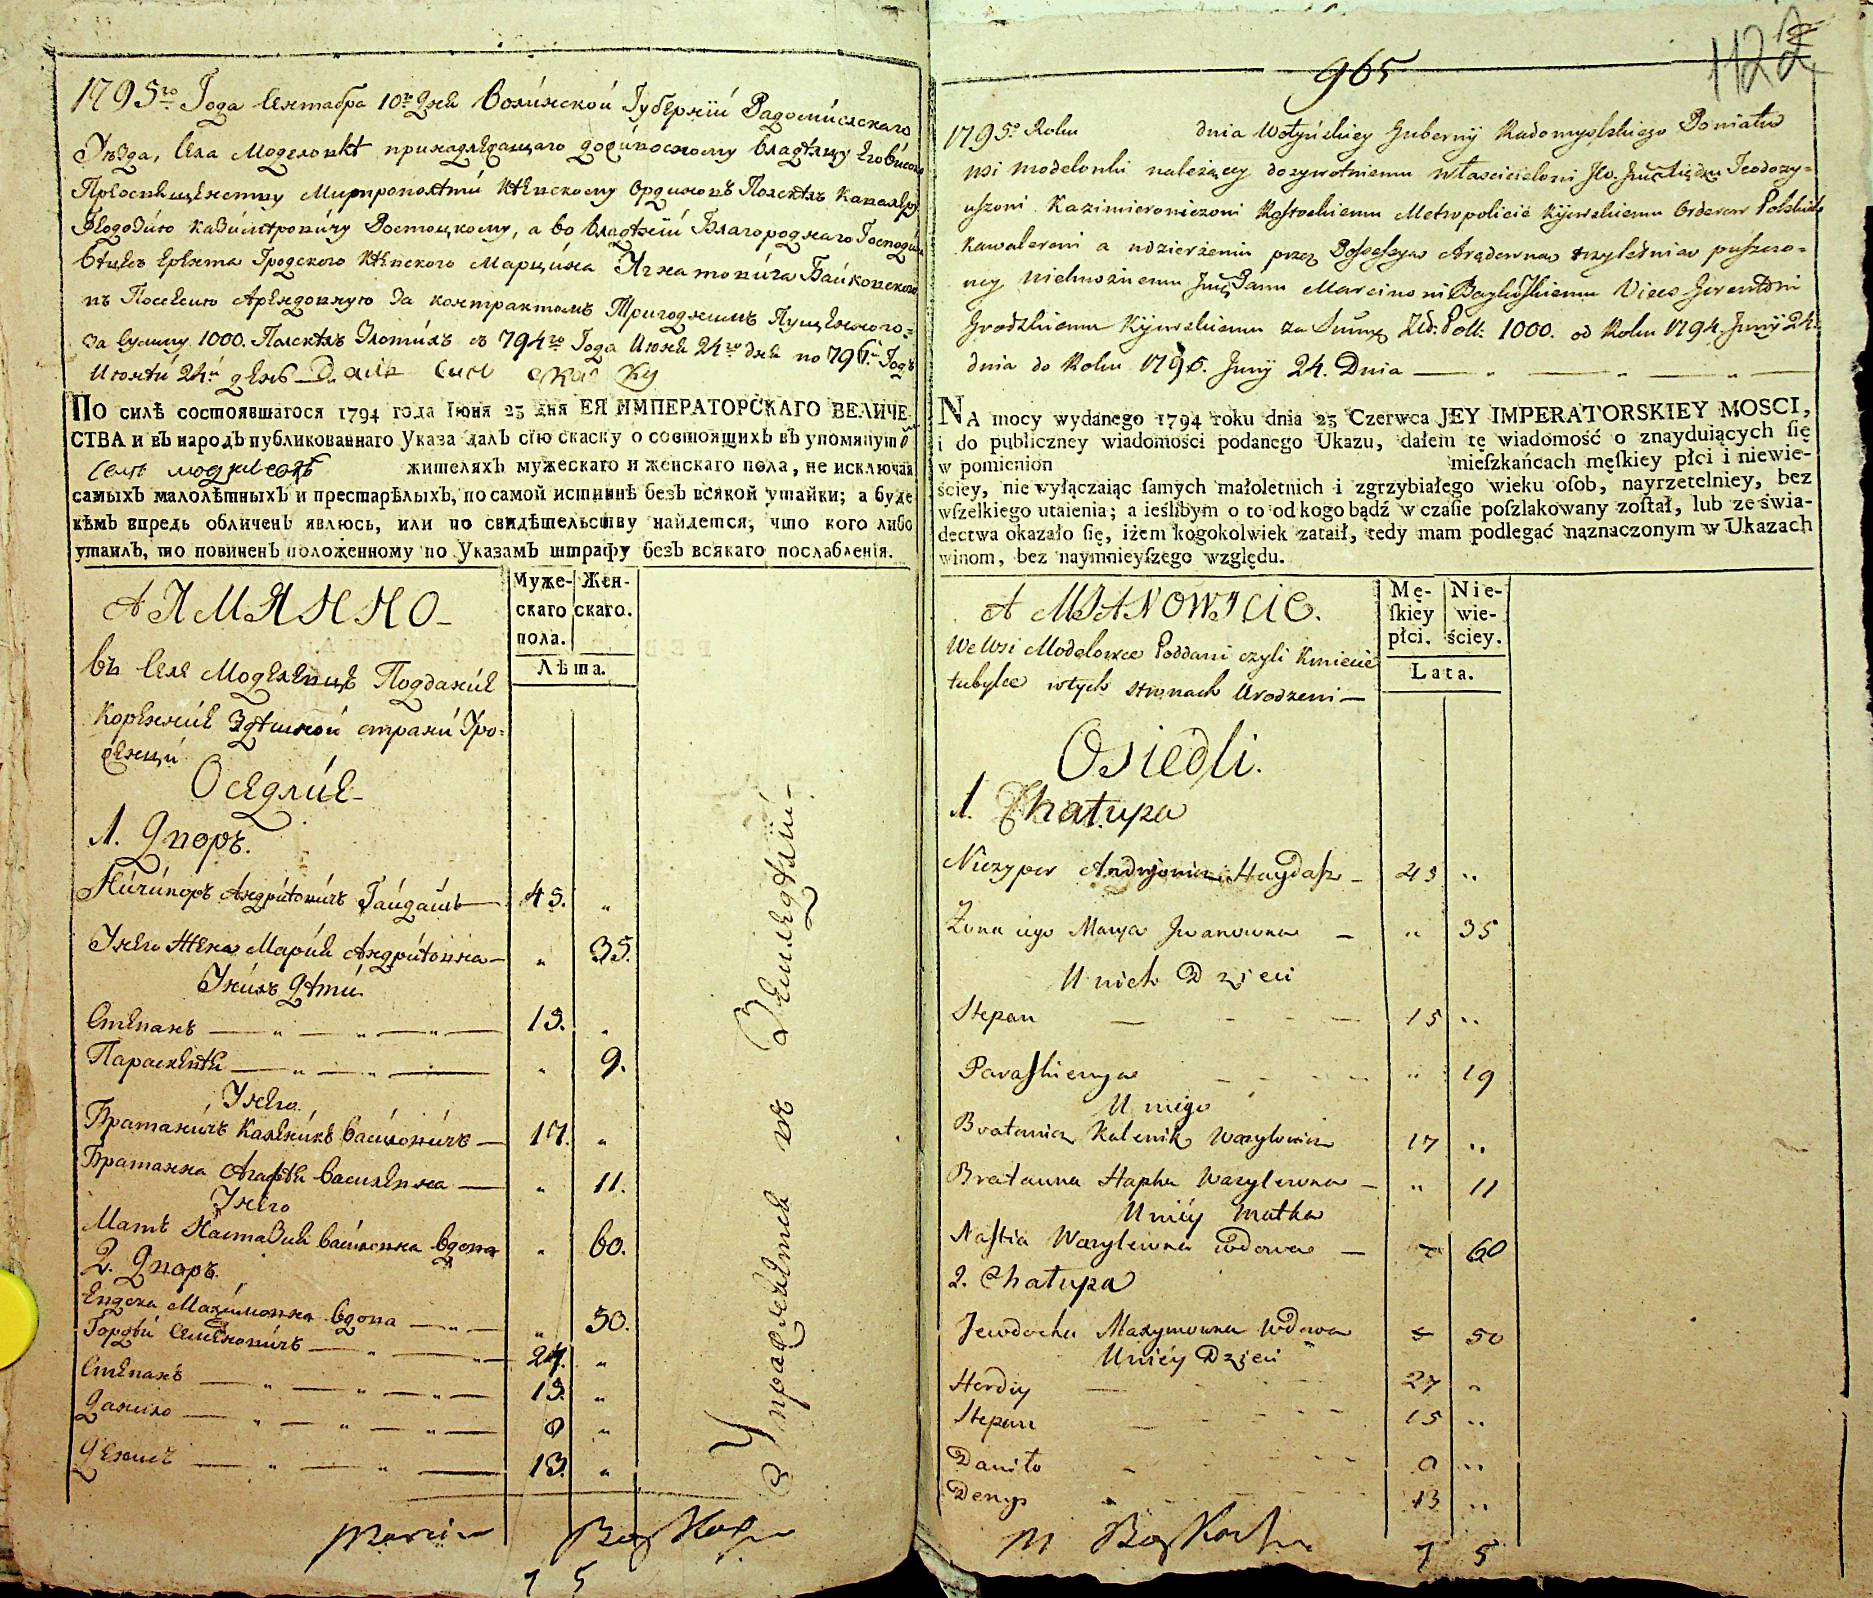 1795го Года Сентября 10го дня Волинской Губернїи Радомисльского
Уѣзда, Села Моделовкѣ принадлежащаго
Преосвященству Митрополиту Кїевскому Ординовъ Полскихъ Кавалеру
Феодозїю Казимѣровичу Ростоцкому, а во владѣнїи Благороднаго Господина
Гродского Кїевского Марцина Игнатовича Байковского
въ Посессию Арендовную за контрактомъ Тригоднимъ Пущенного
за Сумму 1000. Полскихъ Злотихъ с 794го Года Июня 24го дня по 796й Годъ
Июня 24й день Далъ Сию скаску
ПО силѣ состоявшагося 1794 года Іюня 23 дня ЕЯ ИМПЕРАТОРСКАГО ВЕЛИЧЕ-
СТВА и въ народъ публикованнаго Указа далъ сїю скаску о состоящихъ въ упомянутo
Селѣ жителяхъ мужескаго и женскаго пола, не исключая
самыхъ малолѣтныхъ и престарѣлыхъ, по самой истиннѣ безъ всякой утайки; а буде
кѣмъ впредь обличенъ явлюсь, или по свидѣтельству найдется, что кого либо
утаилъ, то повиненъ положенному по Указамъ штрафу безъ всякаго послабленія.
А ИМЯННО
Муже-скаго пола. Жен-скаго.
Лѣта.
въ Селе Моделевцѣ Подданїе
Коренние Здѣшной страни Уро=
женци
Оседлїе
1. Дворъ.
Ничипоръ Андрїовичъ Гайдашъ 45. "
У него Жена Марїя " 35.
У нихъ Дѣти
Степанъ 15. "
Параскевїя " 9.
У него
Братаничъ Каленикъ Василовичъ 17. "
Братанна Агафія Василевна " 11.
У него
Мать Настазия Василевна вдова " 60.
2. Дворъ.
Евдоха Махимовна вдова " 50.
Гордѣй Семеновичъ 27. "
Степанъ 15. "
Данило 8 "
Денисъ 13. "
Упражняется въ Земледѣлїи
Marcin Baykowski
7 5
965
1122
1795o Roku dnia Wołyńskiey Guberny Radomyslskiego Powiatu
wsi Modelowki należącey dozywotniemu właścicielowi Teodozy=
uszowi Kazimierowiczowi Rostockiemu Metropolicie Kijowskiemu Orderow Polskich
Kawalerowi a w dzierżeniu przez Possessyą Arędowną trzyletnią puszczo=
ney Wielmożnemu Panu Marcinowi Baykowskiemu Vices Gerentowi
Grodzkiemu Kijowskiemu za Summę Zł. Poll: 1000. od Roku 1794. Juny 24.
dnia do Roku 1796. Juny 24. Dnia
NA mocy wydanego 1794 roku dnia 23 Czerwca JEY IMPERATORSKIEY MOSCI,
i do publiczney wiadomości podanego Ukazu, dałem tę wiadomość o znayduiących ſię
w pomienion mieſzkańcach męſkiey płci i niewie-
ściey, nie wyłączaiąc ſamych małoletnich i zgrzybiałego wieku oſob, nayrzetelniey, bez
wſzelkiego utaienia; a ieślibym o to od kogo bądź w czaſie poſzlakowany zoſtał, lub ze świa-
dectwa okazało ſię, iżem kogokolwiek zataił, tedy mam podlegać naznaczonym w Ukazach
winom, bez naymnieyſzego względu.
A MIANOWICIE.
Mę-ſkiey płci. Nie-wie-ściey.
Lata.
We Wsi Modelowce Poddani czyli Kmiecie
tubylce w tych stronach Urodzeni
Osiedli.
1. Chałupa
Niczypor Andryiowicz Haydasz 45 "
Żona iego Marya Iwanowna " 35
U nich Dzieci
Stepan 15 "
Paraskiewya " 19
U niego
Bratanicz Kalenik Wasylowicz 17 "
Bratanna Hapka Wasylewna " 11
U niey matka
Nastia Wasylewna wdowa " 60
2. Chałupa
Jewdocha Maxymowna Wdowa " 50
U niey Dzieci
Hordiy 27 "
Stepan 15 "
Daniło 8 "
Denys 13 "
M Baykowski
7 5